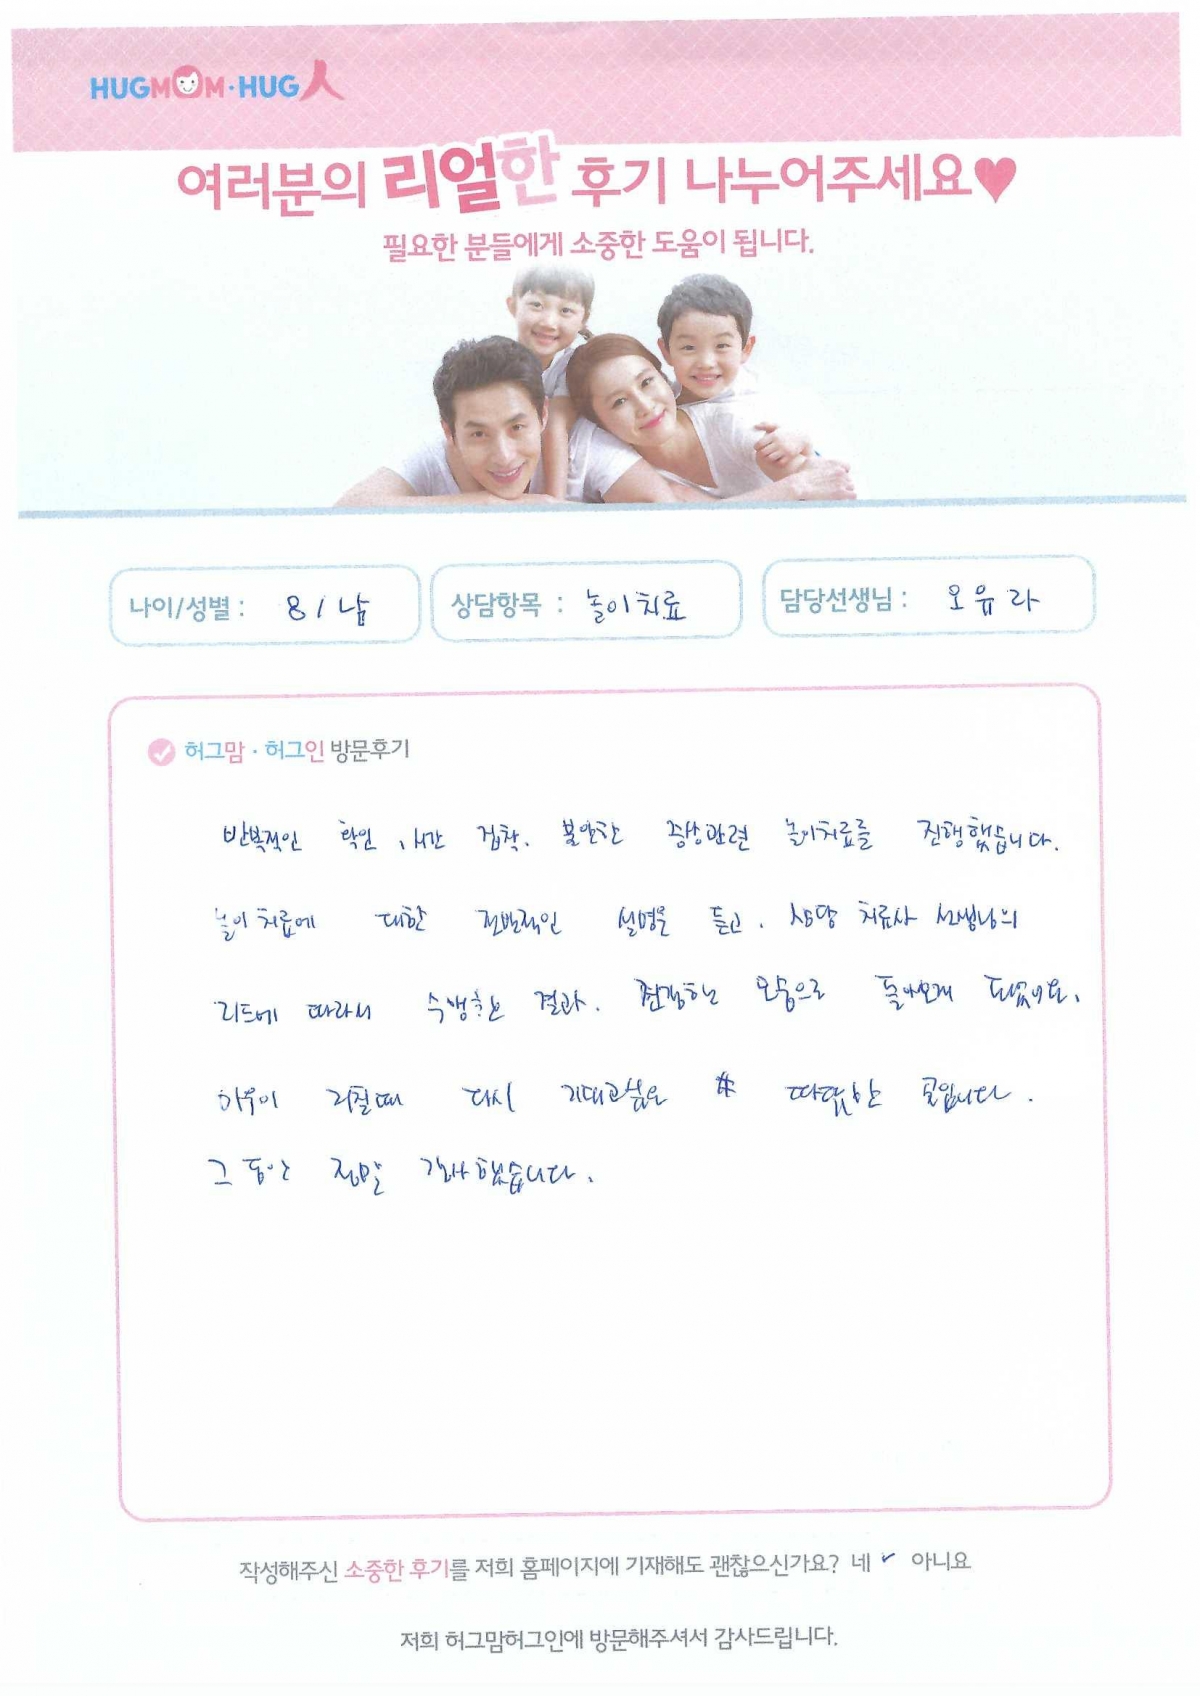 HUGMOM·HUG人
여러분의 리얼한 후기 나누어주세요♥
필요한 분들에게 소중한 도움이 됩니다.
나이/성별 : 8/남
상담항목 : 놀이치료
담당선생님 : 오유라
허그맘·허그인 방문후기
반복적인 확인, 시간 집착, 불안한 증상관련 놀이치료를 진행했습니다.
놀이치료에 대한 전반적인 설명을 듣고, 상담 치료사 선생님의
리드에 따라서 수행한 결과, 건강한 모습으로 돌아오게 되었어요.
하루이 지칠때 다시 기대고싶은 따뜻한 곳입니다.
그동안 정말 감사했습니다.
작성해주신 소중한 후기를 저희 홈페이지에 기재해도 괜찮으신가요? 네 ✓ 아니요
저희 허그맘허그인에 방문해주셔서 감사드립니다.